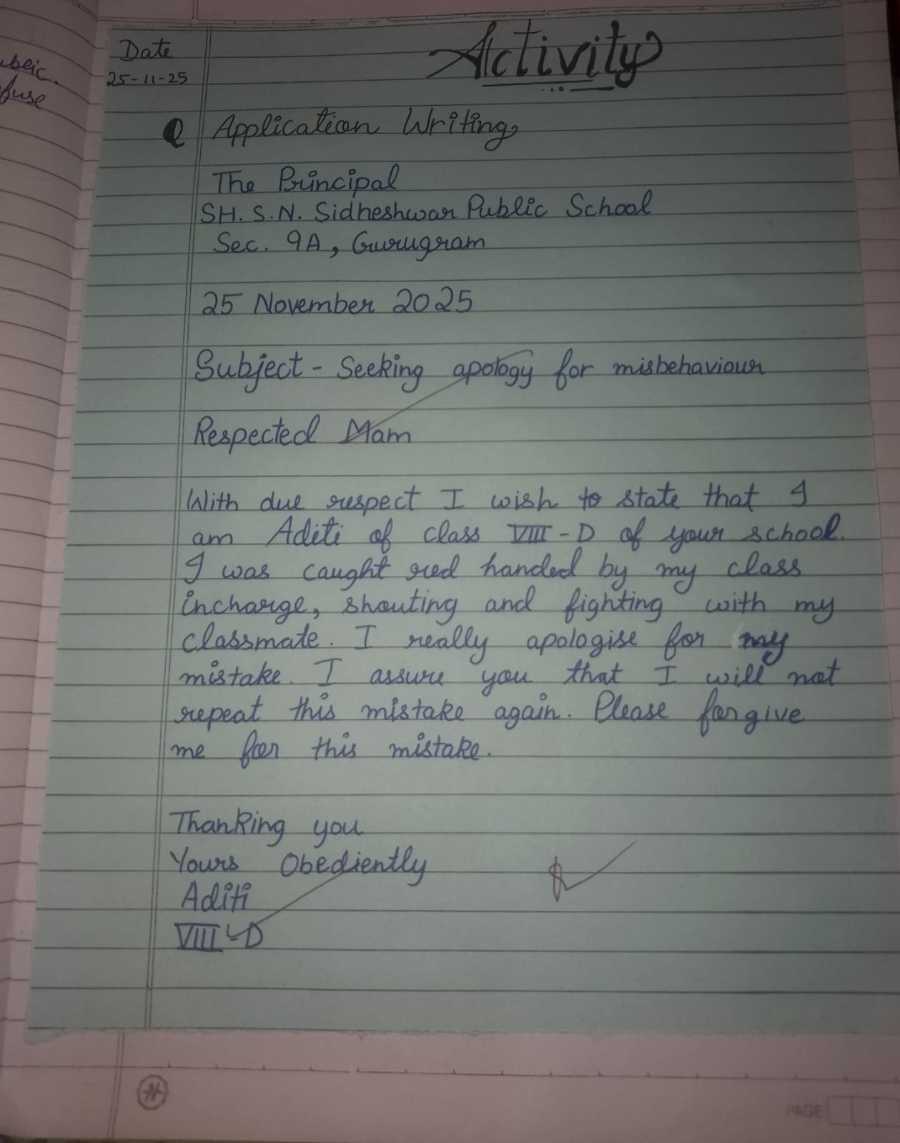 ubeic.
fuse
Date
25-11-25
Activity
Q Application Writing
The Principal
SH. S.N. Sidheshwar Public School
Sec. 9A, Gurugram
25 November 2025
Subject - Seeking apology for misbehaviour
Respected Mam
With due respect I wish to state that I
am Aditi of class VIII - D of your school.
I was caught red handed by my class
incharge, shouting and fighting with my
classmate. I really apologise for my
mistake. I assure you that I will not
repeat this mistake again. Please forgive
me for this mistake.
Thanking you
Yours Obediently
Aditi
VIII - D
PAGE